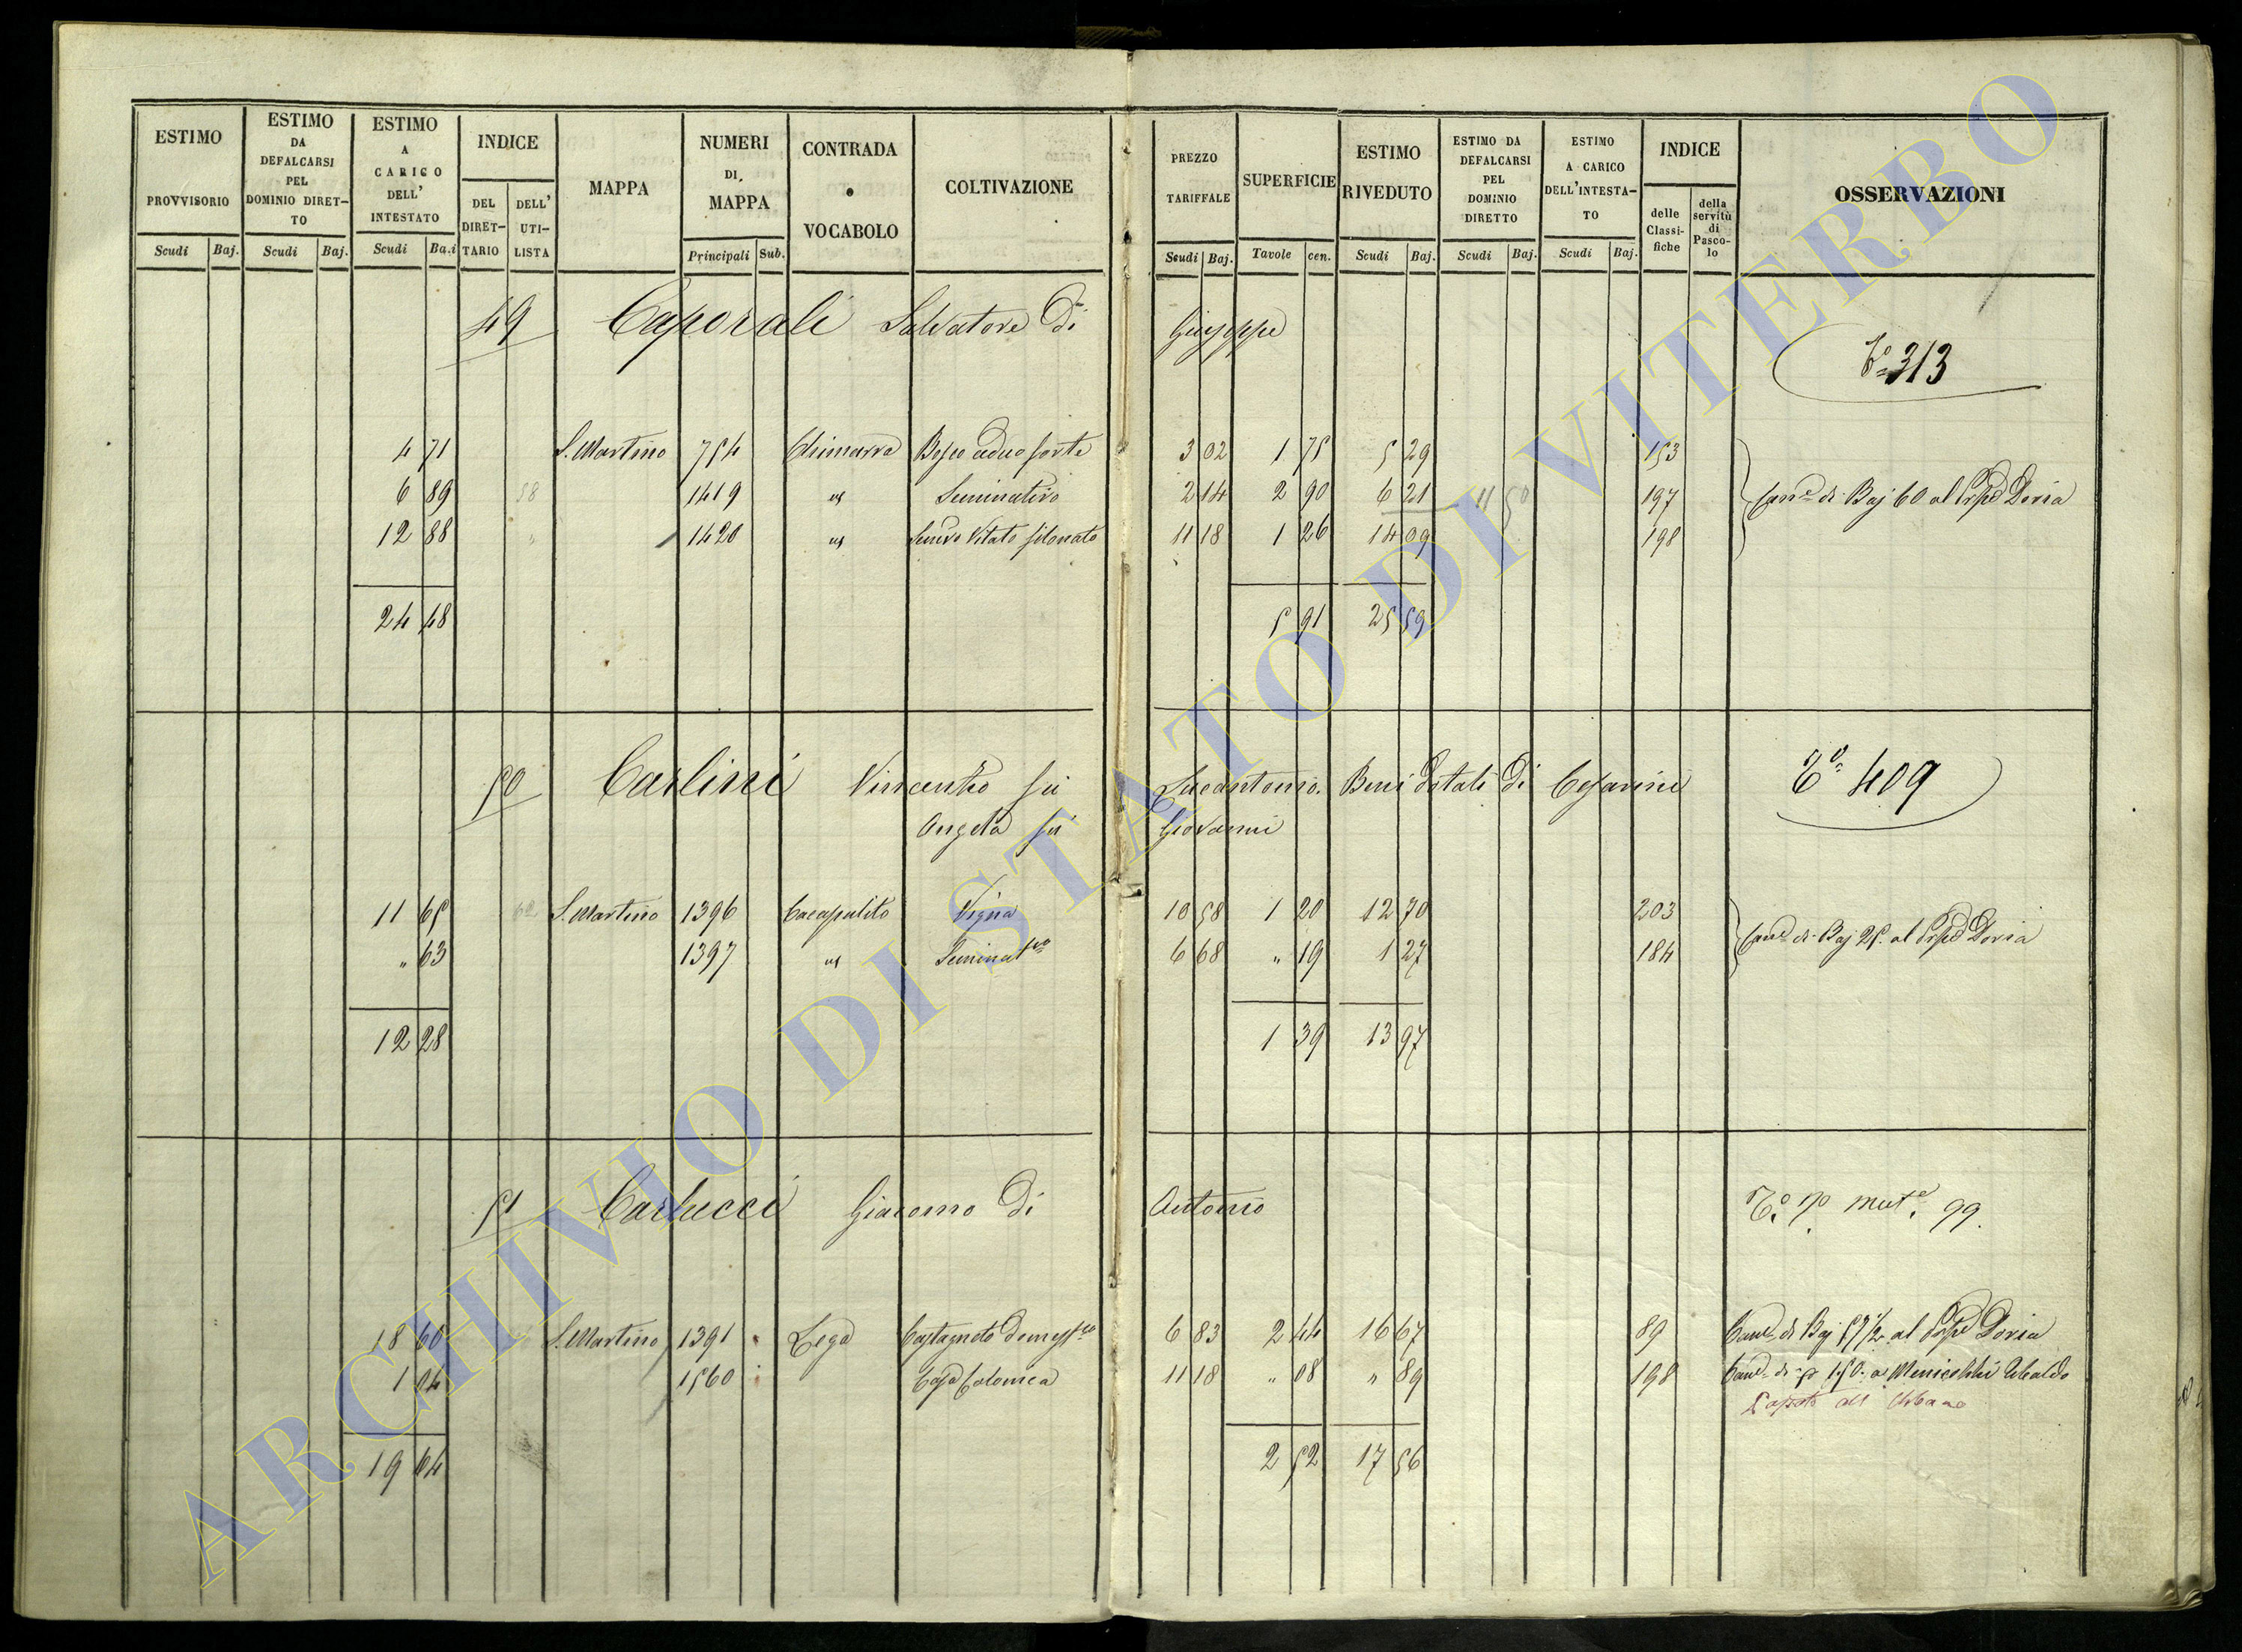 ESTIMO PROVVISORIO Scudi Baj.
ESTIMO DA DEFALCARSI PEL DOMINIO DIRET-TO Scudi Baj.
ESTIMO A CARICO DELL' INTESTATO Scudi Ba.i
INDICE DEL DIRET-TARIO DELL' UTI-LISTA
MAPPA
NUMERI DI MAPPA Principali Sub.
CONTRADA o VOCABOLO
COLTIVAZIONE
PREZZO TARIFFALE Scudi Baj.
SUPERFICIE Tavole cen.
ESTIMO RIVEDUTO Scudi Baj.
ESTIMO DA DEFALCARSI PEL DOMINIO DIRETTO Scudi Baj.
ESTIMO A CARICO DELL'INTESTA-TO Scudi Baj.
INDICE delle Classi-fiche della servitù di Pasco-lo
OSSERVAZIONI
49 Caporali Salvatore di Giuseppe
Tº 313
4 71 S. Martino 754 Chimarra Bosco ceduo forte 3 02 1 75 5 29 153
6 89 58 1419 " Seminativo 2 14 2 90 6 21 11 50 197 Canº di Baj 60 al Prpe Doria
12 88 " 1420 " Vitato 11 18 1 26 14 09 198
24 48 5 91 25 59
50 Carlini Vincenzo fu Lucantonio. Beni Dotali di Cesarini
Tº 409
Angela fu Giovanni
11 65 62 S. Martino 1396 Cacapulito Vigna 10 58 1 20 12 70 203
" 63 1397 " Seminatvo 6 68 " 19 1 27 184 Canº di Baj 25. al Prpe Doria
12 28 1 39 13 97
51 Carlucci Giacomo di Antonio
Tº 70 mutº 99.
18 60 S. Martino 1391 Lega Castagneto domesco 6 83 2 44 16 67 89 Canº di Baj 57 1/2 al Prpe Doria
1 04 1560 Casa Colonica 11 18 " 08 " 89 198 Canº di 1.50. a Menicocchi Ubaldo
all' Urbano
19 64 2 52 17 56
ARCHIVIO DI STATO DI VITERBO